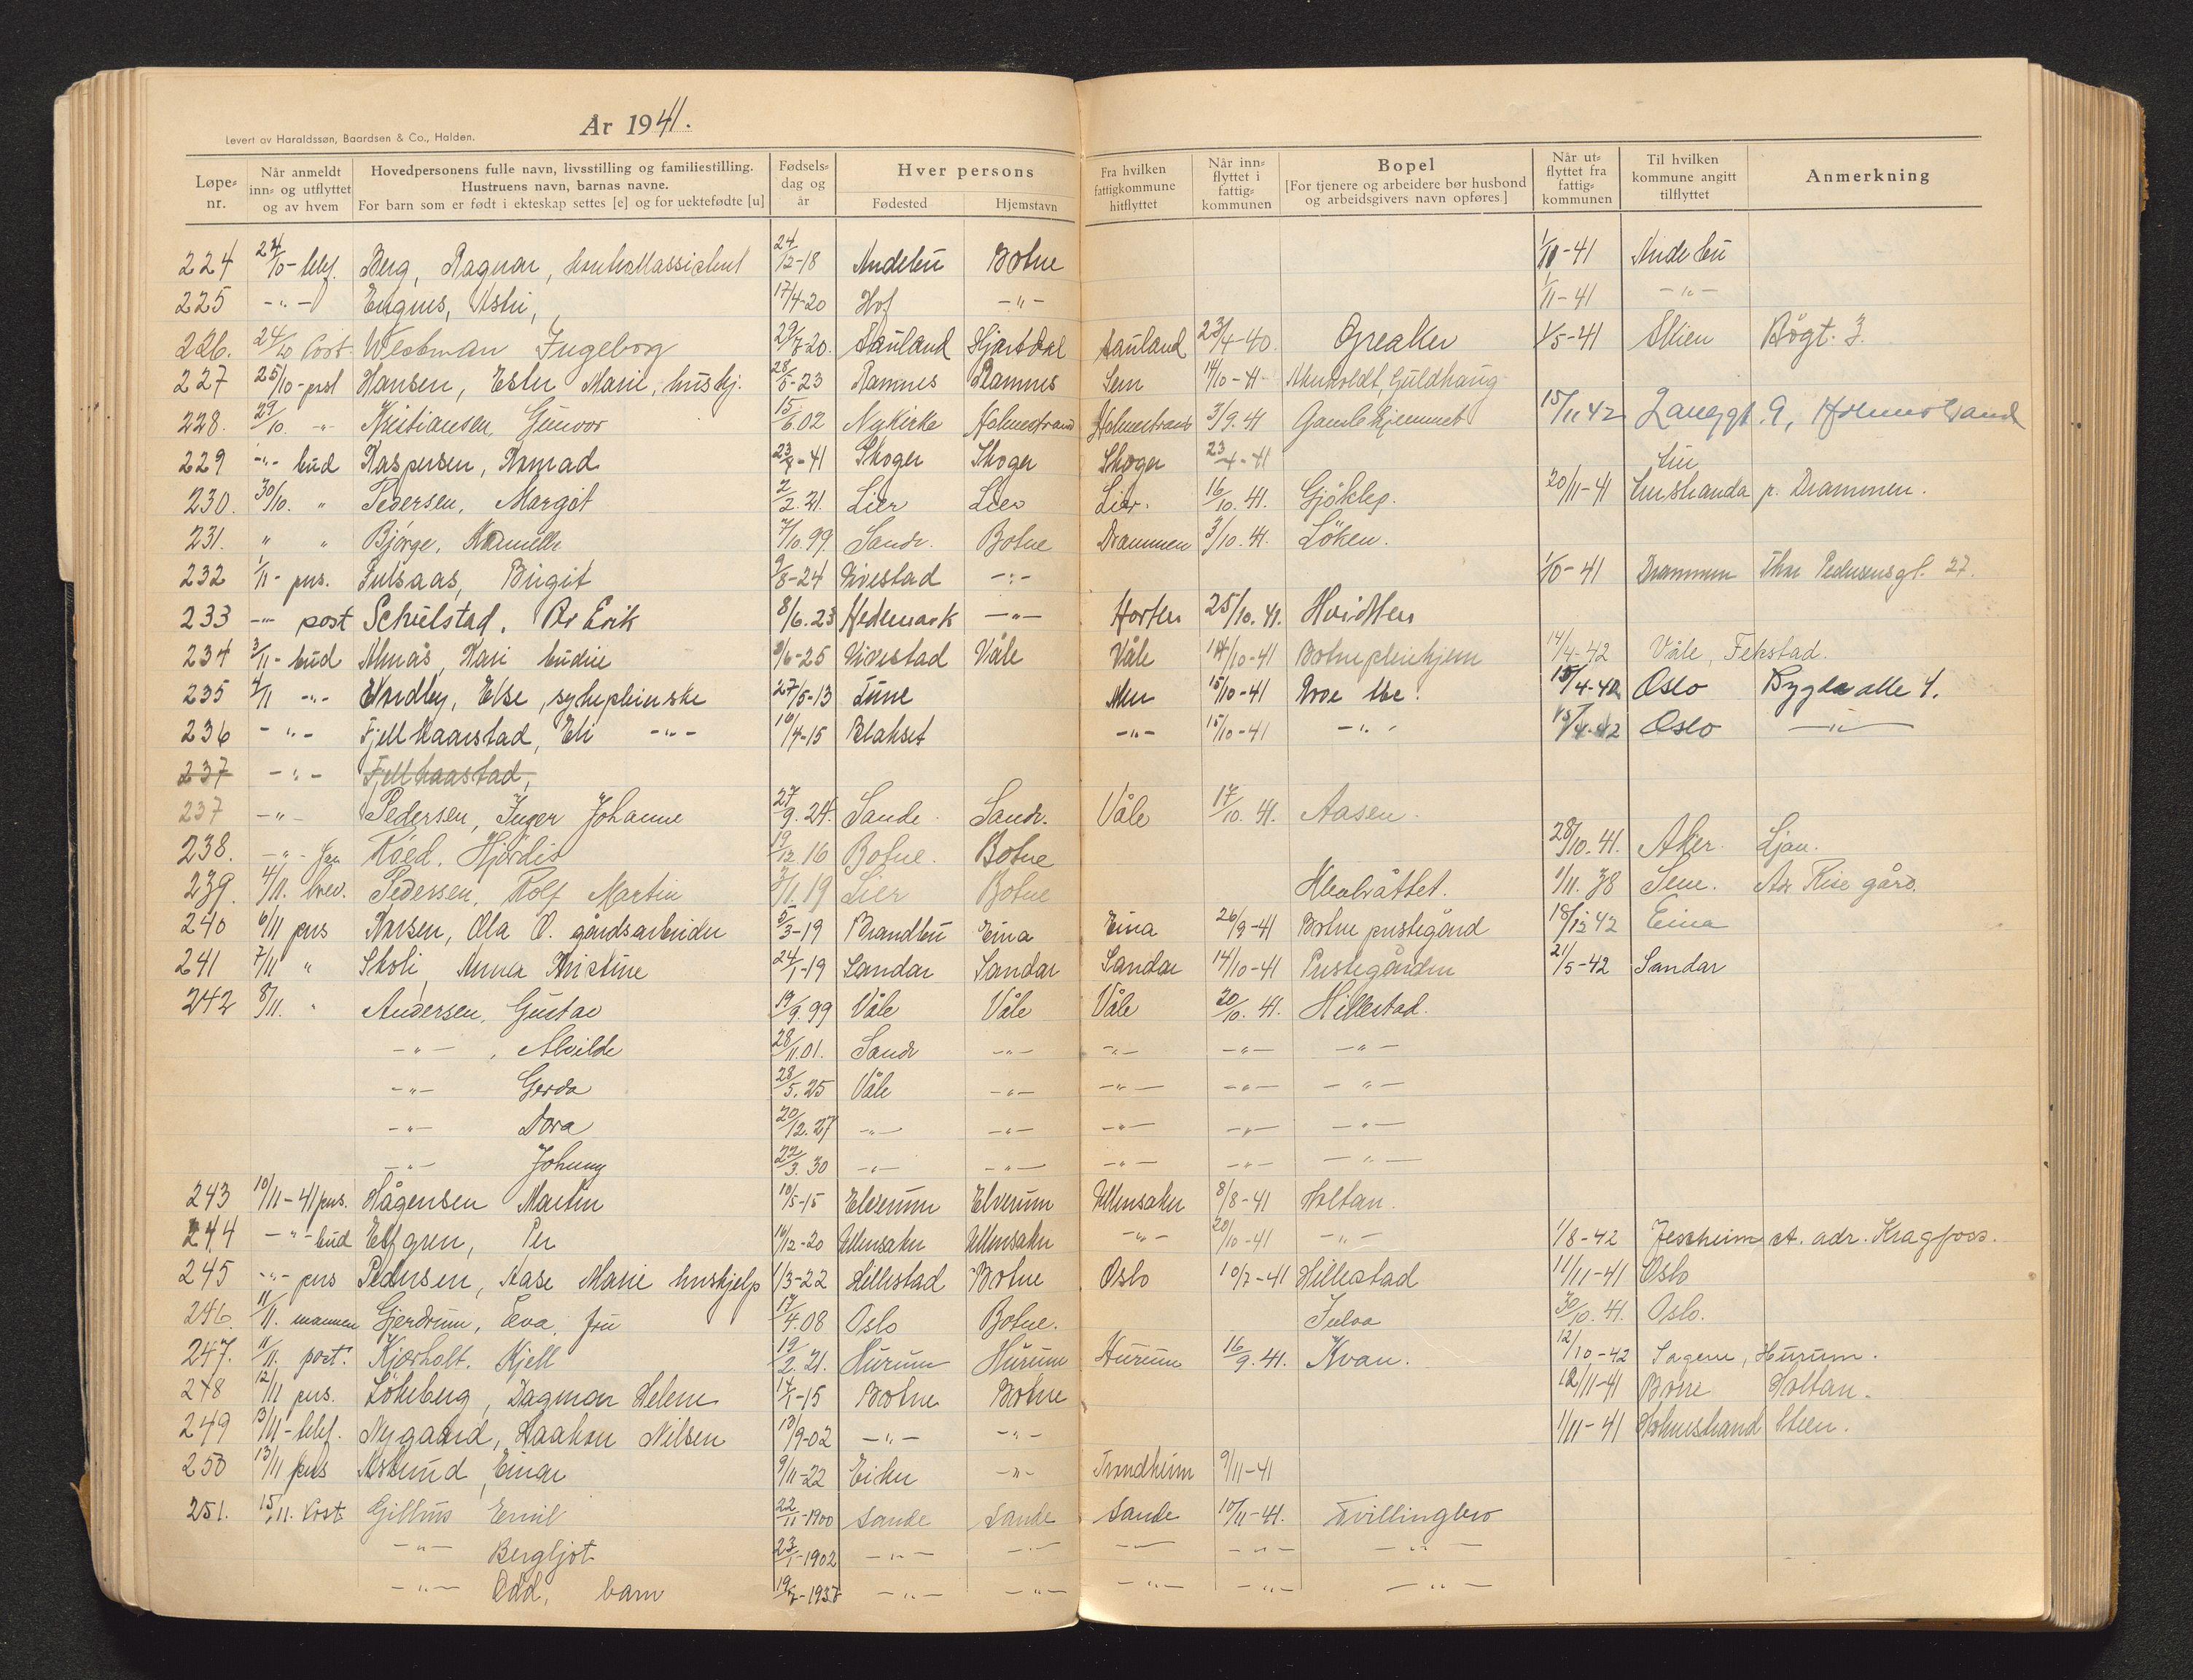 Levert av Haraldssøn, Baardsen & Co., Halden.
År 1941.
Løpe-nr. | Når anmeldt inn- og utflyttet og av hvem | Hovedpersonens fulle navn, livsstilling og familiestilling. Hustruens navn, barnas navne. For barn som er født i ekteskap settes [e] og for uektefødte [u] | Fødsels-dag og år | Hver persons Fødested | Hjemstavn | Fra hvilken fattigkommune hitflyttet | Når inn-flyttet i fattig-kommunen | Bopel [For tjenere og arbeidere bør husbond og arbeidsgivers navn opføres] | Når ut-flyttet fra fattig-kommunen | Til hvilken kommune angitt tilflyttet | Anmerkning
224 24/10- telef. Berg, Ragnar, 24/12-18 Andebu Botne 1/10-41 Andebu
225 -"- 17/4-20 Hof -"- 1/11-41 -"-
226. 24/10 Post. Westman Ingeborg 29/7-20. Sauland Hjartdal Sauland 23/4-40. Greaker 1/5-41 Skien Bøgt. 3.
227 25/10-post Hansen, Ester Marie, hushj. 28/5-23 Ramnes Ramnes Sem 14/10-41 Guldhaug
228. 29/10. -"- Kristiansen, Gunvor 15/6.02 Nykirke Holmestrand Holmestrand 3/9.41 Gamlehjemmet 15/11 42 Langgt. 9, Holmestrand
229 -"- bud Kaspersen, Konrad 23/4-41 Skoger Skoger Skoger 23/4-41
230. 30/10. " Pedersen, Margit 2/2.21. Lier Lier Lier. 16/10.41. Gjøklep. 20/11-41 p. Drammen.
231. " " Bjørge, Kamilla 7/10.99. Sande. Botne Drammen 3/10.41. Løken.
232 1/11- pers. Julsaas, Birgit 9/8-24 Hillestad -"- 1/10-41 Drammen Thor Pedersensgt. 27.
233 -"- post Schulstad, Per Erik 8/6.23 Hedemark -"- Horten 25/10.41. Hvidsten
234 3/11- bud Almås, Kari budeie 8/6-25 Hillestad Våle Våle 14/10-41 Botne pleiehjem 14/4-42 Våle, Fekstad.
235 4/11 -"- Lundby, Else, sykepleierske 27/5-13 Tune 15/10-41 15/4-42 Oslo Bygdø alle 4.
236 -"- Fjellhaarstad, Eli -"- 10/4-15 Blakset -"- 15/10-41 -"- 15/4-42 Oslo -"-
237 -"- Fjellhaastad,
237 -"- Pedersen, Inger Johanne 27/9.24. Sande. Sande. Våle 17/10.41. Aasen.
238. -"- Røed. Hjørdis 19/12.16 Botne. Botne 28/10.41. Aker. Ljan.
239. 4/11. brev. Pedersen, Rolf Martin 2/11.19 Lier Botne 1/11.38 Sem. Adr Rise gård.
240 6/11 pers Larsen, Ola O. gårdsarbeider 5/3-19 Brandbu Eina Eina 26/9-41 Botne prestegård 18/12 42 Eina
241 7/11 " Skoli, Anna Kristine 24/1-19 Sandar Sandar Sandar 14/10-41 Prestegården 21/5-42 Sandar
242 8/11. " Andersen, Gustav 19/9.99 Våle Våle Våle 20/10.41. Hillestad.
-"- , Alvilde 28/11.01. Sande -"- -"- -"- -"-
-"- Gerda 28/5.25 Våle -"- -"- -"- -"-
-"- Dora 20/12.27 -"- -"- -"- -"- -"-
-"- Johnny 22/3.30 -"- -"- -"- -"- -"-
243 10/11-41 pers. Hågensen Martin 10/5-15 Elverum Elverum Ullensaker 8/8-41 Holtan.
244 -"- bud Elfgren, Per 16/12-20 Ullensaker Ullensaker -"- 20/10-41 -"- 1/8-42 Jessheim st. adr. Kragfoss.
245 -"- pers Pedersen, Aase Marie hushjelp 1/3-22 Hillestad Botne Oslo 10/7-41 Hillestad 11/11-41 Oslo
246. 11/11. mannen Gjerdrum, Eva, fru 17/4.08 Oslo Botne. 30/10.41. Oslo.
247. 11/11. post. Kjærholt. Kjell 19/2.21. Hurum Hurum Hurum 16/9.41. Kvan. 12/10-42 Sagene, Hurum.
248 12/11 pers. Løkeberg, Dagmar Helene 14/1-15 Botne Botne 12/11-41 Borre Holtan.
249 13/11-telef. Nygaard, Haakon Nilsen 18/9-02 -"- -"- 1/11-41 Holmestrand
250 13/11 pers Aslund, Einar 9/11-22 Eiker -"- Trondheim 9/11-41
251. 15/11. Post. Gillhus Emil 22/11-1900 Sande Sande Sande 10/11-41. Tvillingbro
-"- Bergljot 23/1-1902 -"- -"- -"- -"- -"-
-"- Odd, barn 19/7-1937 -"- -"- -"- -"- -"-